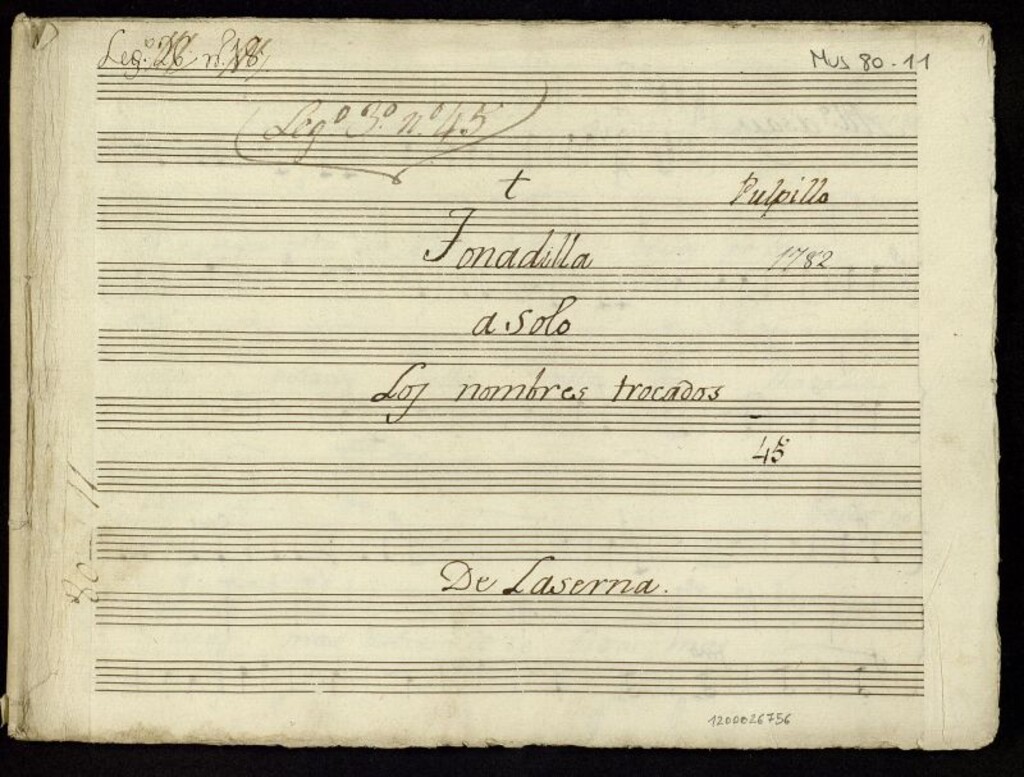 Leg.º 28. n.º 18.
Mus 80-11
Legº 3.º n.º 45
t
Pulpillo
Tonadilla
1782
a solo
Los nombres trocados
45
80-11
De Laserna.
1200026756